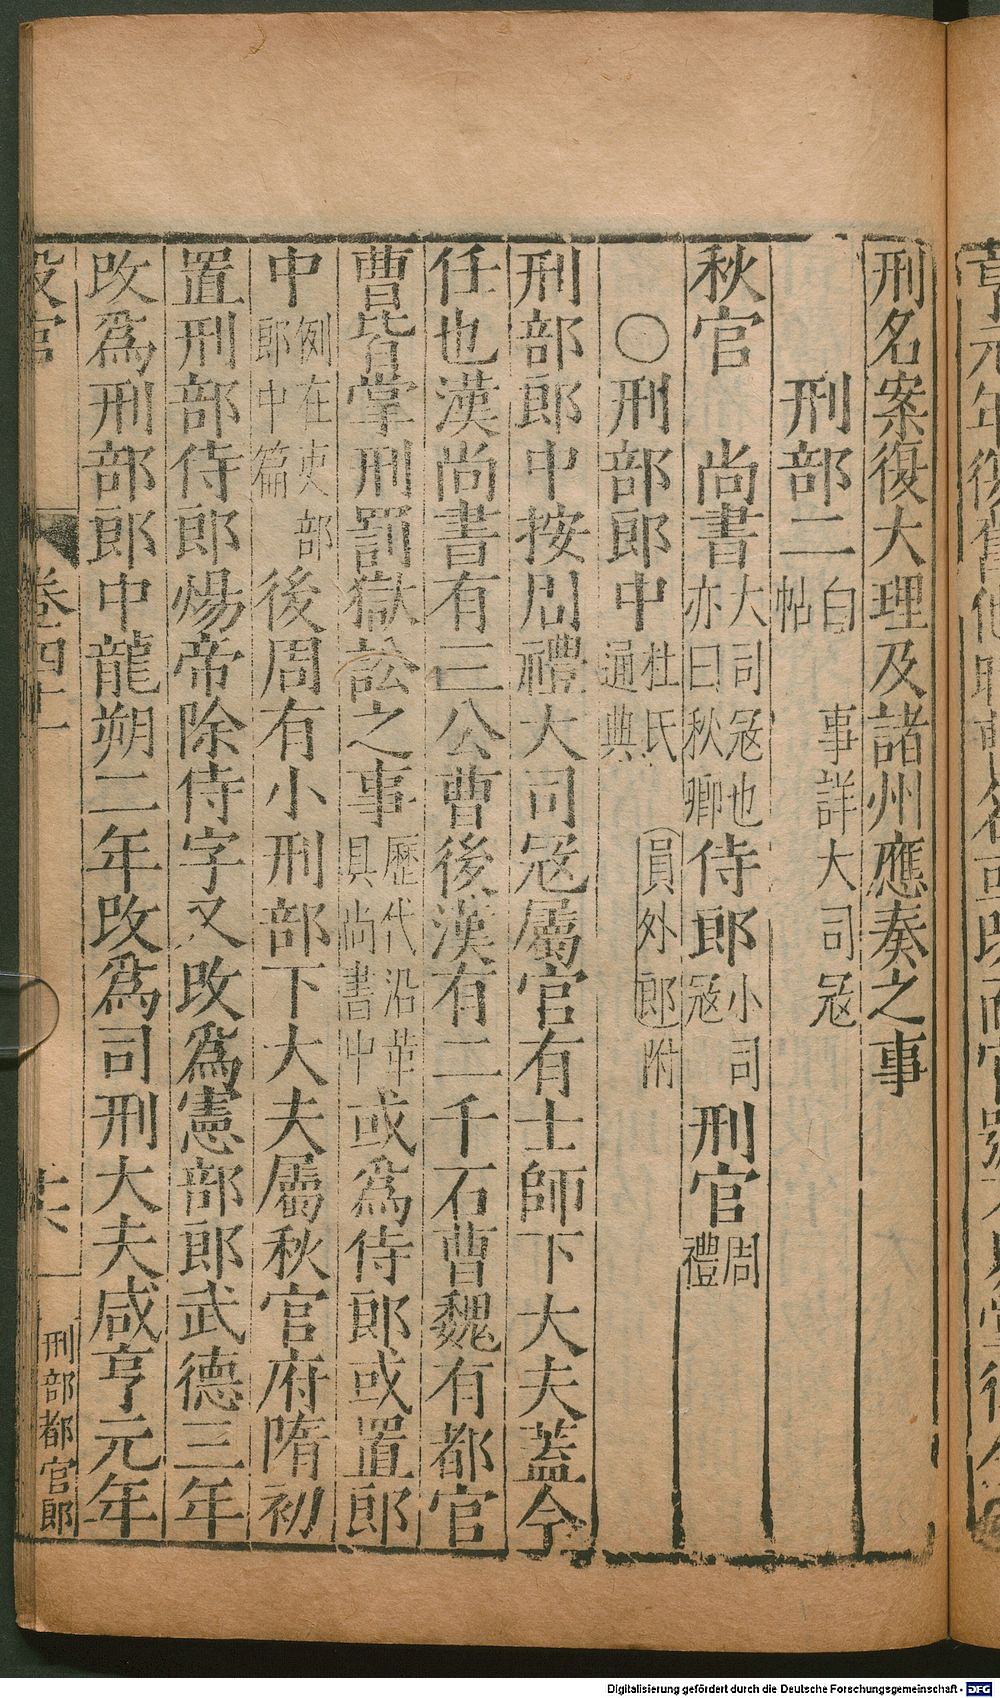 刑名案復大理及諸州應奏之事
刑部二白帖事詳大司寇
秋官 尚書大司寇也亦曰秋卿侍郎小司寇刑官周禮
○刑部郎中杜氏通典員外郎附
刑部郎中按周禮大司寇屬官有士師下大夫蓋今
任也漢尚書有三公曹後漢有二千石曹魏有都官
曹皆掌刑罰獄訟之事歷代沿革具尚書中或爲侍郎或置郎
中例在吏部郎中篇後周有小刑部下大夫屬秋官府隋初
置刑部侍郎煬帝除侍字又改爲憲部郎武德三年
改爲刑部郎中龍朔二年改爲司刑大夫咸亨元年
設官 卷四十 十六 刑部都官郎
Digitalisierung gefördert durch die Deutsche Forschungsgemeinschaft - DFG